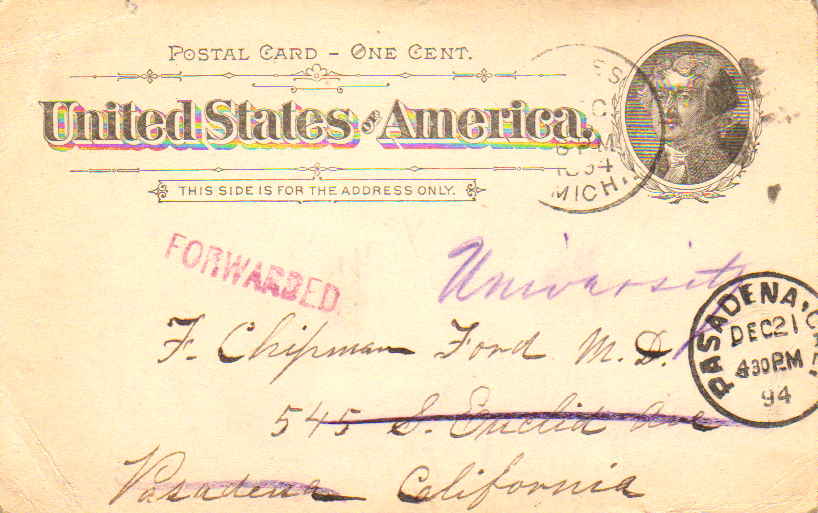 POSTAL CARD - ONE CENT.
United States of America.
THIS SIDE IS FOR THE ADDRESS ONLY.
6 PM
1894
MICH.
FORWARDED.
University
F. Chipman Ford M.D.
545 S. Euclid Ave
Pasadena California
PASADENA, CAL.
DEC 21
430 PM
94